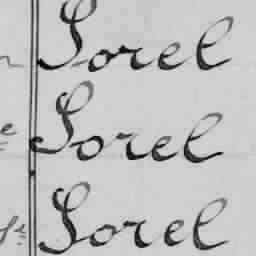 Sorel
Sorel
Sorel